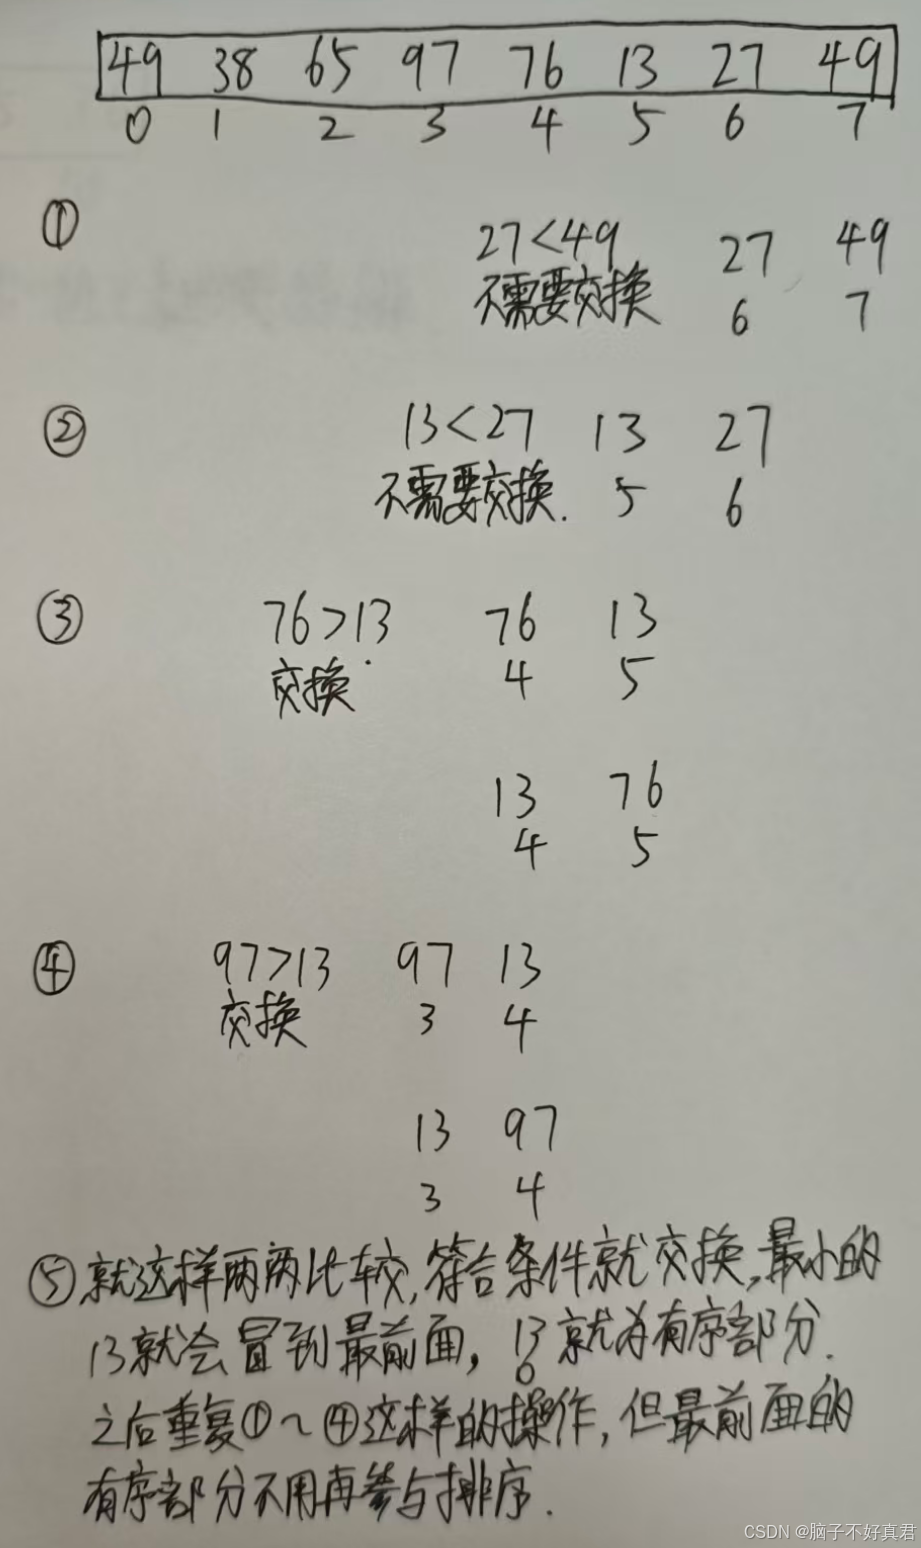 49 38 65 97 76 13 27 49
0 1 2 3 4 5 6 7
①
27<49 27 49
不需要交换 6 7
②
13<27 13 27
不需要交换. 5 6
③
76>13 76 13
交换 4 5
13 76
4 5
④
97>13 97 13
交换 3 4
13 97
3 4
⑤就这样两两比较,符合条件就交换,最小的
13就会冒到最前面,13就为有序部分.
0
之后重复①~④这样的操作,但最前面的
有序部分不用再参与排序.
CSDN @脑子不好真君